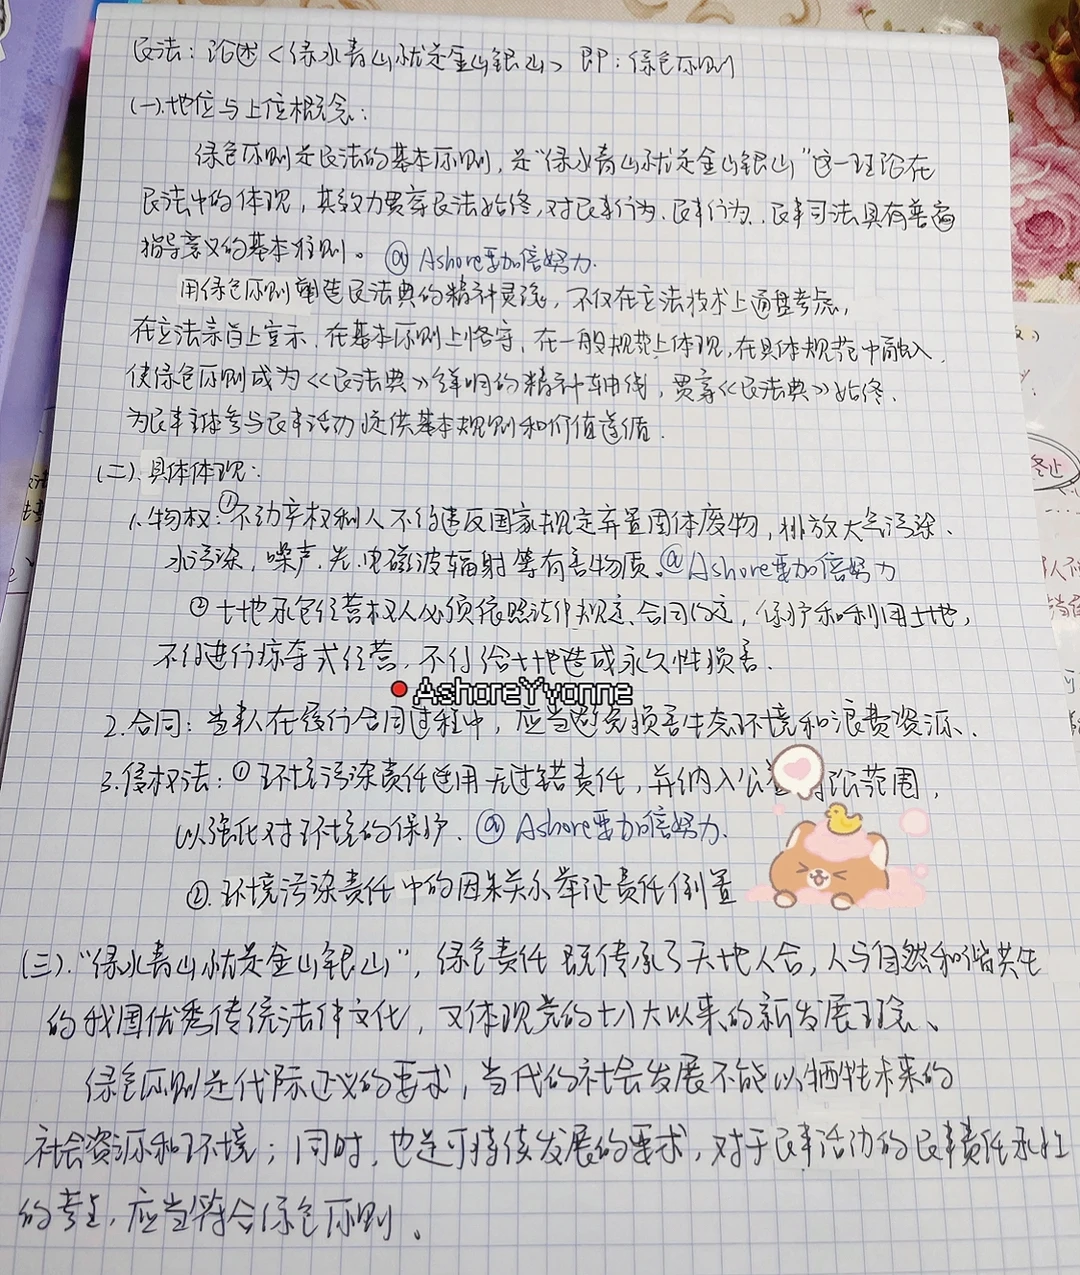 民法：论述〈绿水青山就是金山银山〉即：绿色原则
(一).地位与上位概念：
绿色原则是民法的基本原则，是“绿水青山就是金山银山”这一理论在
民法中的体现，其效力贯穿民法始终，对民事行为、民事行为、民事司法具有普遍
指导意义的基本准则。@Ashore要加倍努力.
用绿色原则塑造民法典的精神灵魂，不仅在立法技术上通盘考虑，
在立法宗旨上宣示、在基本原则上恪守、在一般规范上体现，在具体规范中融入、
使绿色原则成为《民法典》鲜明的精神轴线，贯穿《民法典》始终、
为民事主体参与民事活动提供基本规则和价值遵循.
(二).具体体现：
1.物权：①不动产权利人不得违反国家规定弃置固体废物，排放大气污染、
水污染，噪声.光.电磁波辐射等有害物质。@Ashore要加倍努力
②土地承包经营权人必须依照法律规定、合同约定，保护和利用土地，
不得进行掠夺式经营，不得给土地造成永久性损害.
AshoreYvonne
2.合同：当事人在履行合同过程中，应当避免损害生态环境和浪费资源、
3.侵权法：①环境污染责任适用无过错责任，并纳入公益诉讼范围，
以强化对环境的保护.@Ashore要加倍努力.
②.环境污染责任中的因果关系举证责任倒置
(三).“绿水青山就是金山银山”，绿色责任既传承了天地人合，人与自然和谐共生
的我国优秀传统法律文化，又体现党的十八大以来的新发展理念、
绿色原则是代际正义的要求，当代的社会发展不能以牺牲未来的
社会资源和环境；同时，也是可持续发展的要求，对于民事活动的民事责任承担
的考量，应当符合绿色原则。